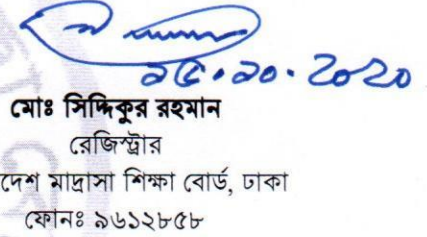 ১৫.১০.২০২০
মোঃ সিদ্দিকুর রহমান
রেজিস্ট্রার
দেশ মাদ্রাসা শিক্ষা বোর্ড, ঢাকা
ফোনঃ ৯৬১২৮৫৮